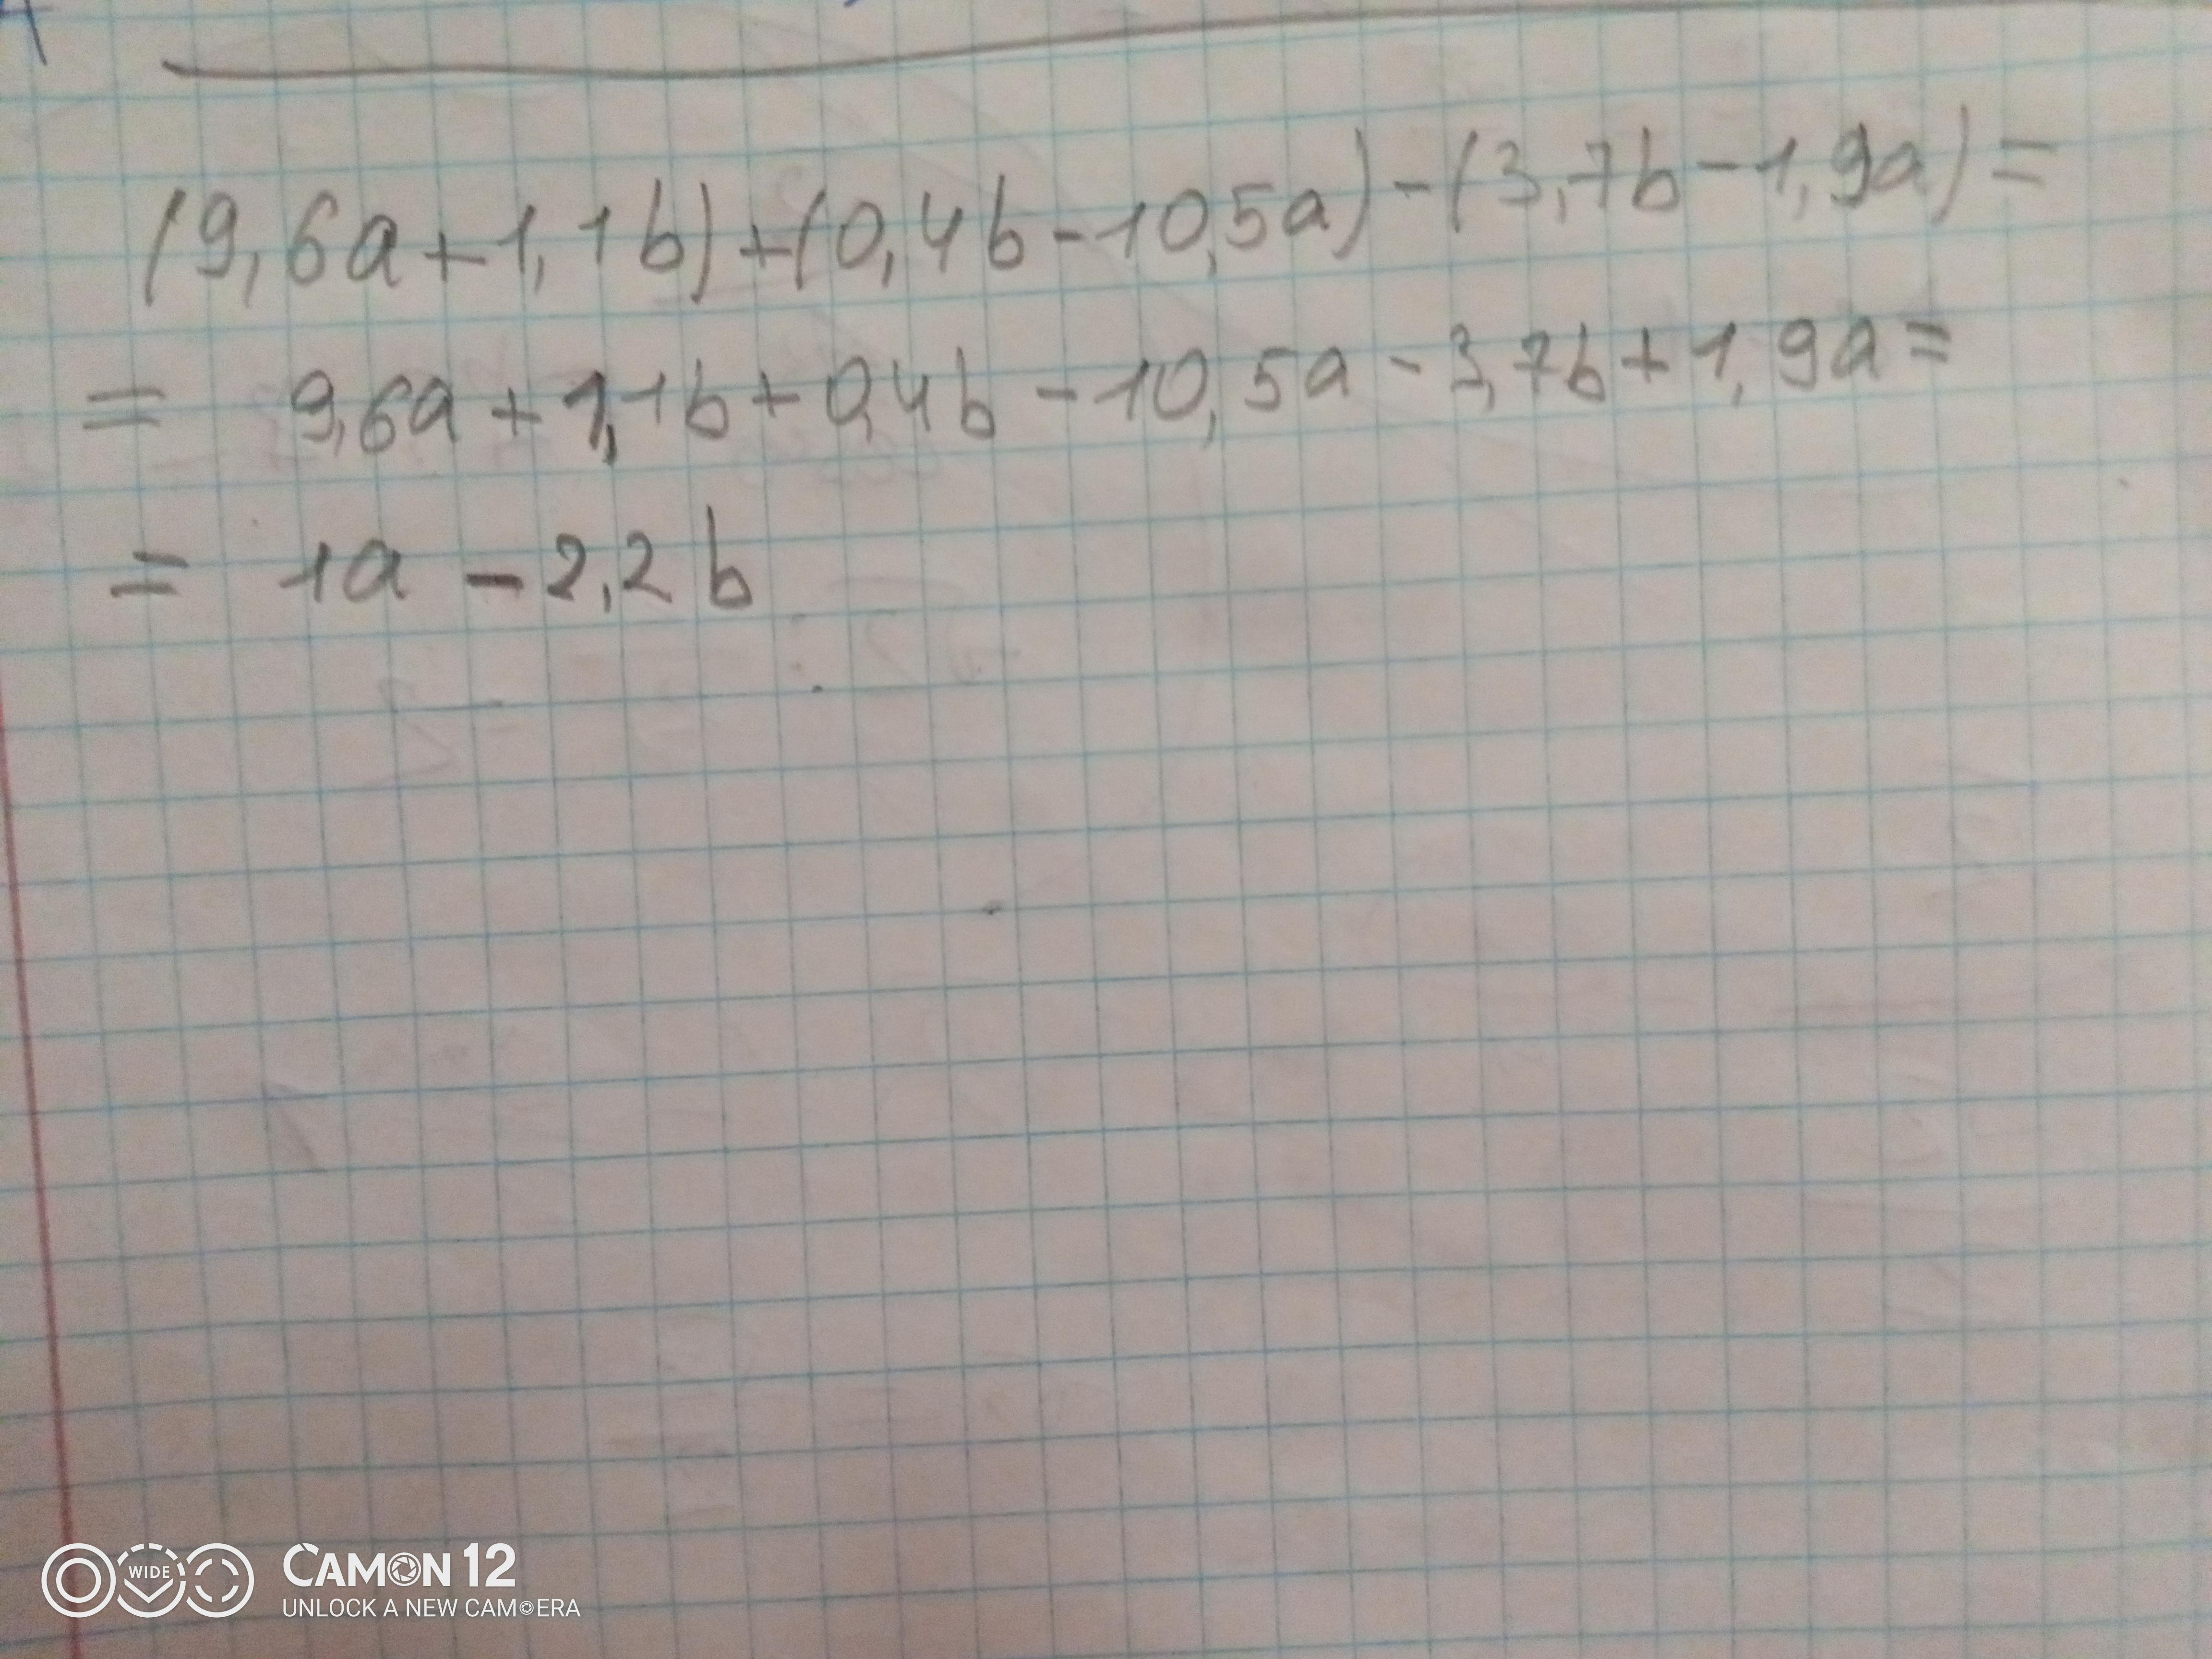 (9,6a+1,1b)+(0,4b-10,5a)-(3,7b-1,9a)=
= 9,6a+1,1b+0,4b-10,5a-3,7b+1,9a=
= 1a-2,2b
WIDE
CAMON 12
UNLOCK A NEW CAMERA